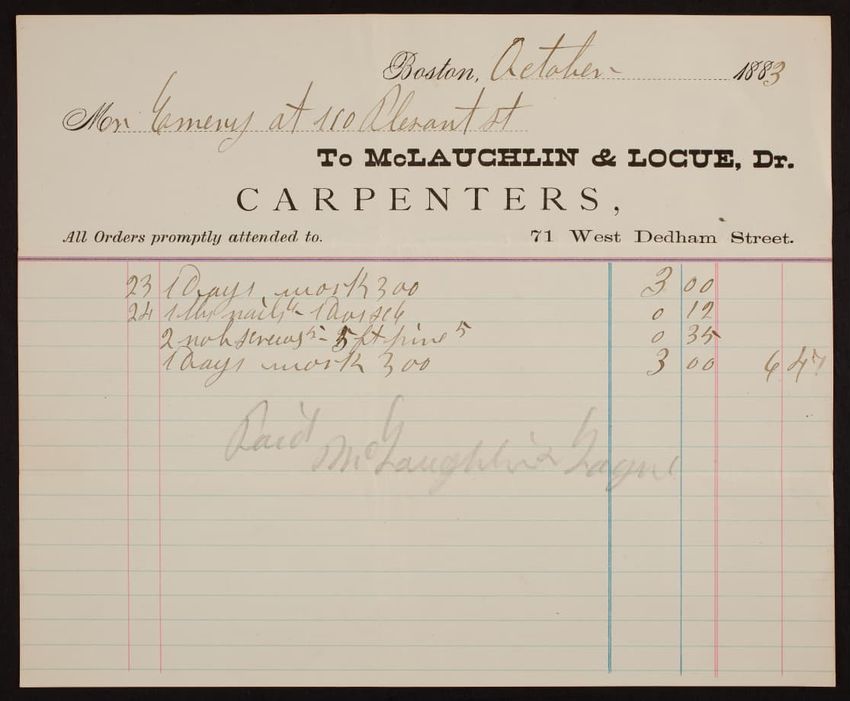 Boston, October 1883
Mr Emery at 110 Plesant st
To McLAUGHLIN & LOGUE, Dr.
CARPENTERS,
All Orders promptly attended to. 71 West Dedham Street.
23 1 Days work 300 3 00
24 1 nails 0 12
2 screws 5 ft pine 5 0 35
1 Days work 300 3 00 6 47
Paid
McLaughlin & Logue